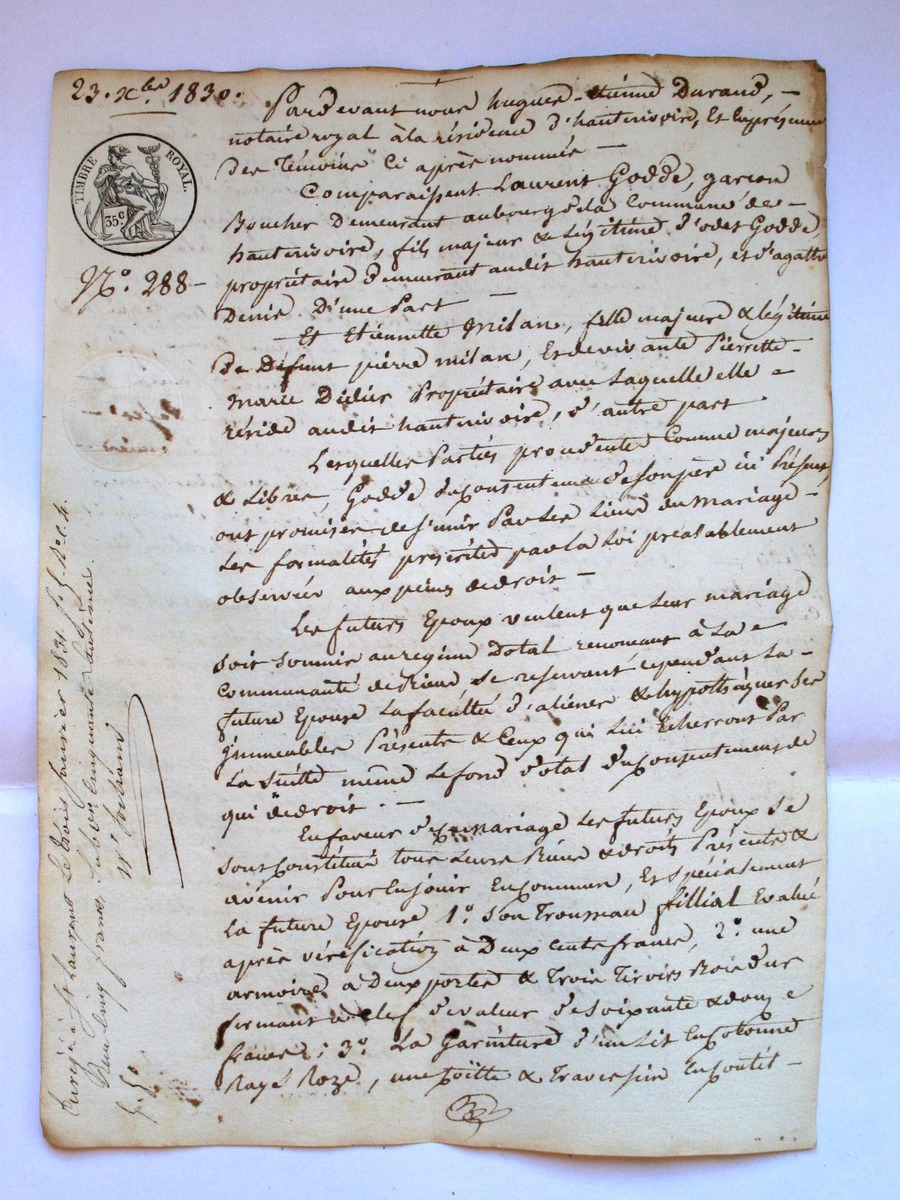 23. xbre 1830.
TIMBRE ROYAL.
35c
No. 288
Pardevant nous hugues-étienne Durand,
notaire royal à la résidence d'hauterivoire, Et En présence
Des Témoins Ci après nommés
Comparaissent Laurent Godde, garçon
Boucher Demeurant au bourg de la Commune de
hauterivoire, fils majeur & légitime d'odet Godde
propriétaire demeurant audit hauterivoire, et d'agathe
Denis D'une Part
Et Etiennette Milan, fille majeure & légitime
De Défunt pierre milan, Et de vivante Pierrette
Marie Didier Propriétaire avec Laquelle elle
réside audit hauterivoire, d'autre part
Lesquelles Parties procédente Comme majeurs
& Libres, Godde du Consentement de son père ici Présent,
ont promises de s'unir Par Les Liens du Mariage
Les formalités prescrites par la Loi préalablement
observées aux peines de droit
Les futurs Epoux veulent que Leur mariage
soit soumis au regime Dotal renonçant à La
Communauté de Biens, se reservant cependant La
future Epouse La faculté d'aliéner & hypothéquer Ses
Immeubles Présents & Ceux qui Lui Echerront Par
La Suitte même Le fond dotal du Consentement de
qui de droit.
En faveur de Ce Mariage Les futurs Epoux Se
sont Constitué tous Leurs Biens & droits Présents &
avenir Pour En jouir En Commun, Et spécialement
La future Epouse 1o. Son Trousseau fillial Evalué
après vérification à Deux Cents francs, 2o. une
armoire à Deux portes & Trois Tiroirs Bois dur
fermant à clef de valeur de soixante & douze
francs; 3o. La Garniture d'un Lit En Cotonne
Rayé Roze, une Coitte & Traversin En Coutil
Enregé à St Laurent Le trois Janvier 1831. fo. 5 Rec. 4.
Reçu cinq francs, Subvon cinquante centimes.